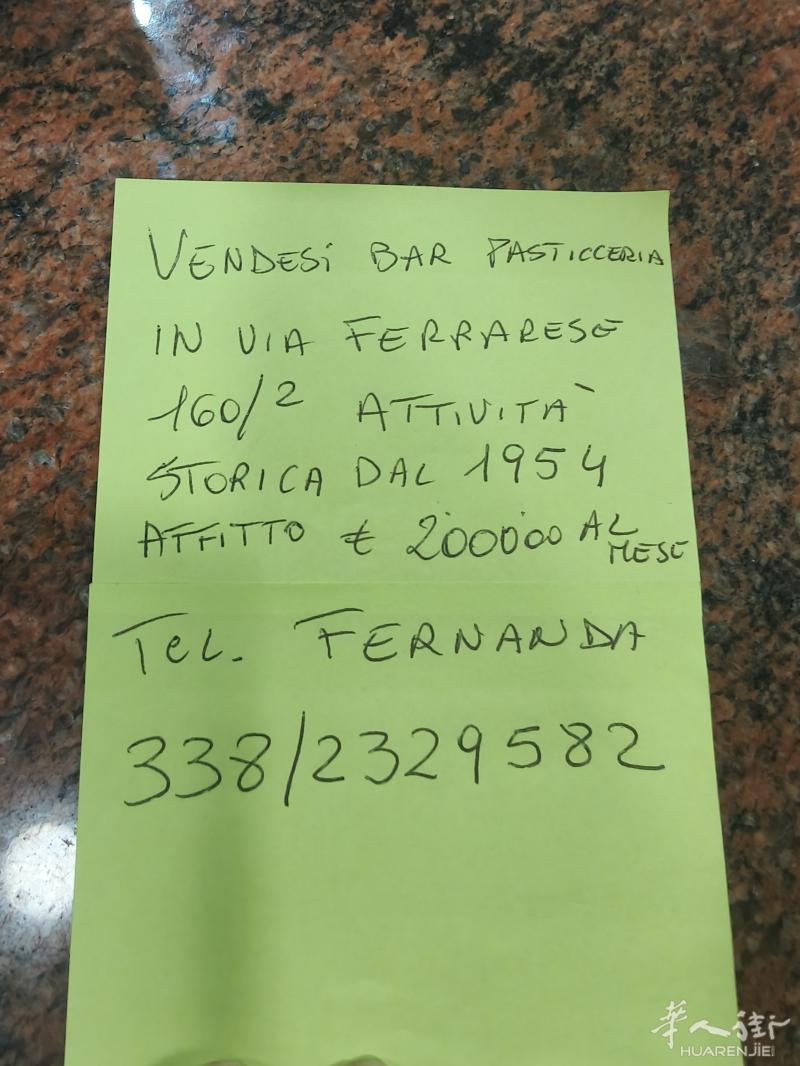 VENDESi BAR PASTICCERIA
IN VIA FERRARESE
160/2 ATTIVITÀ
STORICA DAL 1954
AFFITTO € 200000 AL MESE
TEL. FERNANDA
338/2329582
華人街
HUARENJIE